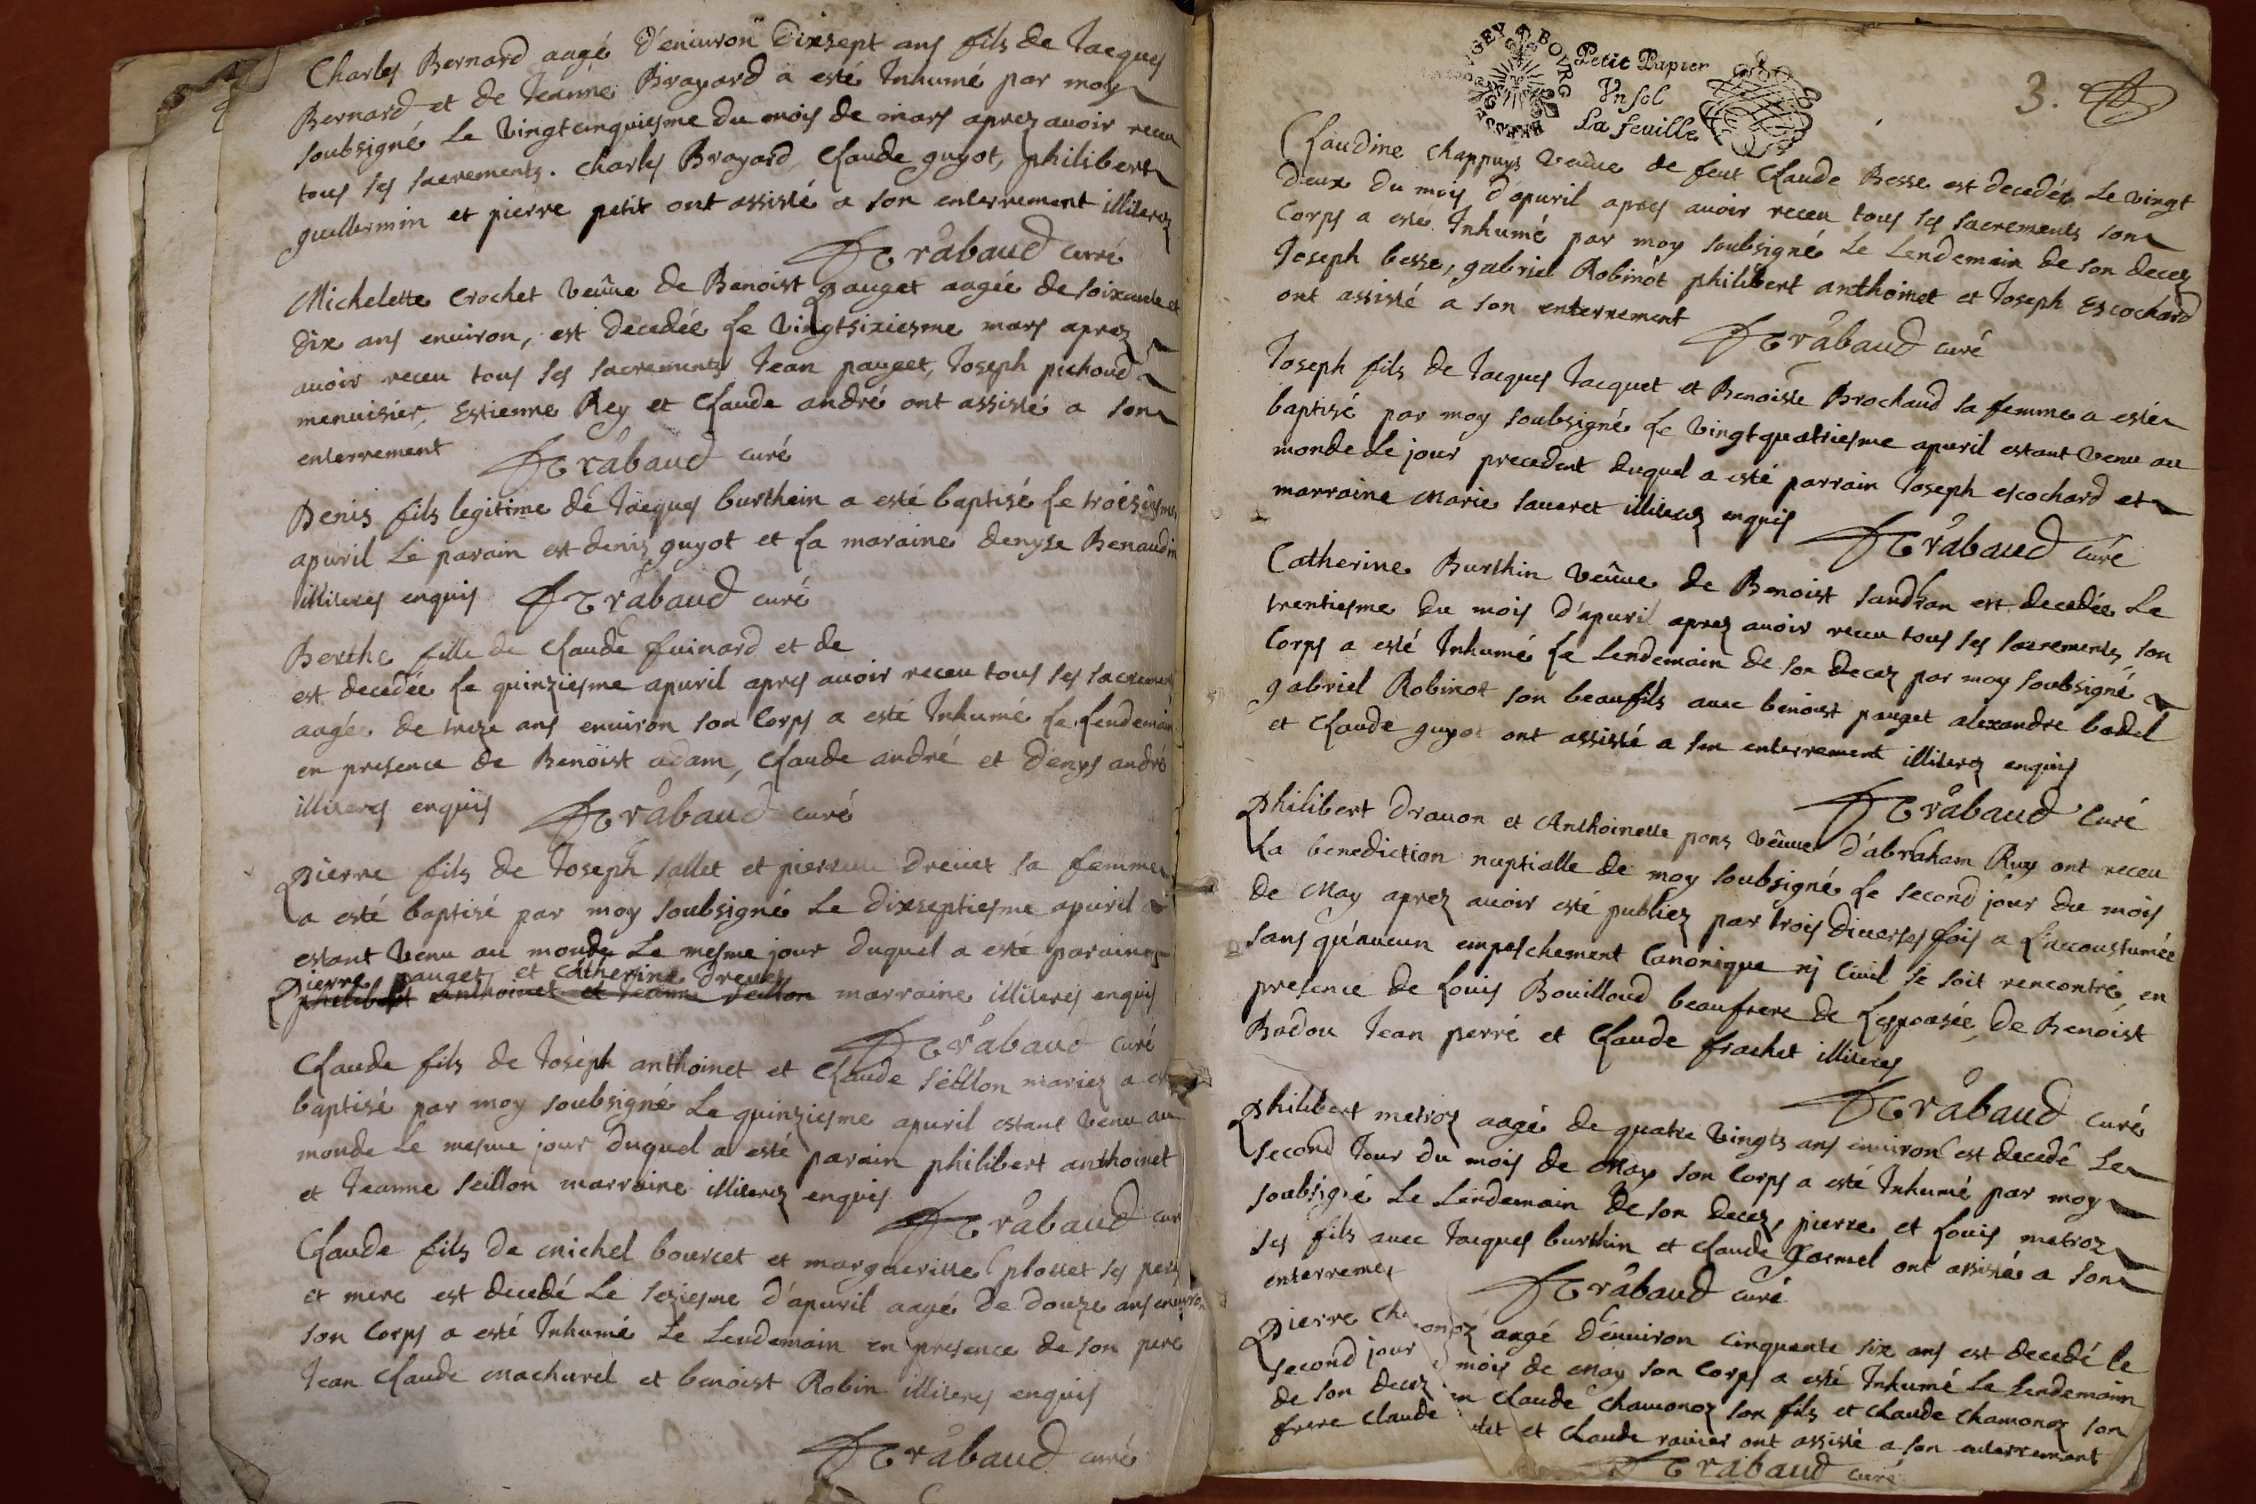 Charles Bernard aagé d'enuiron dixsept ans fils de Jacques
Bernard et de Jeanne Brayard a esté Inhumé par moy
soubsigné le vingtcinquiesme du mois de mars aprez auoir receu
tous ses sacrements. Charles Brayard, Claude guyot, philibert
guillermin et pierre petit ont assisté a son enterrement illiterez
Trabaud curé
Michelette Crochet veûue de Benoist pauget aagée de soixante et
dix ans enuiron, est decedée le vingtsixiesme mars aprez
auoir receu tous ses sacrements Jean pauget, Joseph pichoud
menuisier, Estienne Rey et Claude andré ont assisté a son
enterrement
Trabaud curé
Denis fils legitime de Jacques burthein a esté baptisé le troisiesme
apuril le parain est denis guyot et la maraine denyse Renaudin
illiteres enquis Trabaud curé
Berthe fille de Claude fuinard et de
est decedée le quinziesme apuril apres auoir receu tous ses sacremens
aagée de treze ans enuiron son Corps a esté Inhumé le lendemain
en presence de Benoist adam, Claude andré et denys andré
illiteres enquis Trabaud curé
Pierre fils de Joseph sallet et pierrette dreuet sa femme
a esté baptisé par moy soubsigné le dixseptiesme apuril
estant venu au monde le mesme jour duquel a esté parain
Pierre pauget et Catherine dreuet
philibert anthoinet et Jeanne seillon marraine illiteres enquis
Trabaud curé
Claude fils de Joseph anthoinet et Claude seillon mariez a esté
baptisé par moy soubsigné le quinziesme apuril estant venu au
monde le mesme jour duquel a esté parain philibert anthoinet
et Jeanne seillon marraine illiterez enquis
Trabaud cur
Claude fils de michel bourcet et margueritte plottet ses pere
et mere est decedé le seziesme d'apuril aagé de douze ans enuiron
son Corps a esté Inhumé le lendemain en presence de son pere
Jean Claude machurel et benoist Robin illiteres enquis
Trabaud curé
BOVRG
Petit Papier
Vn sol
La feuille
3.
Claudine Chappuys veûue de feut Claude Besse est decedée le vingt
deux du mois d'apuril apres auoir receu tous ses sacrements son
Corps a esté Inhumé par moy soubsigné le lendemain de son decez
Joseph besse, gabriel Robinot philibert anthoinet et Joseph Escochard
ont assisté a son enterrement
Trabaud curé
Joseph fils de Jacques Jacquet et Benoiste Brochaud sa femme a esté
baptisé par moy soubsigné le vingtquatriesme apuril estant venu au
monde le jour precedent duquel a esté parrain Joseph escochard et
marraine Marie saueret illiterez enquis
Trabaud curé
Catherine Burthin veûue de Benoist sandran est decedée le
trentiesme du mois d'apuril aprez auoir receu tous ses sacrements, son
Corps a esté Inhumé le lendemain de son decez par moy soubsigné
gabriel Robinot son beaufils auec benoist pauget alexandre badel
et Claude guyot ont assisté a son enterrement illiterez enquis
Trabaud Curé
Philibert drauon et Anthoinette pons veûue d'abraham Ruy ont receu
la benediction nuptialle de moy soubsigné le second jour du mois
de May aprez auoir esté publiez par trois diuerses fois a l'accoustumée
sans qu'aucun empeschement Canonique nj Ciuil se soit rencontré en
presence de Louis Bouilloud beaufrere de l'espousée, de Benoist
Badou Jean perré et Claude frachet illiteres
Trabaud curé
Philibert metroz aagé de quatre vingts ans enuiron est decedé le
second Jour du mois de May son Corps a esté Inhumé par moy
soubsigné le lendemain de son decez, pierre et Louis metroz
ses fils auec Jacques burthin et Claude gormel ont assisté a son
enterremet
Trabaud curé
Pierre Ch onoz aagé d'enuiron cinquante six ans est decedé le
second jour mois de May son Corps a esté Inhumé le lendemain
de son decez Claude chamonoz son fils et Claude Chamonoz son
frere Claude et Claude rauier ont assisté a son enterrement
Trabaud curé